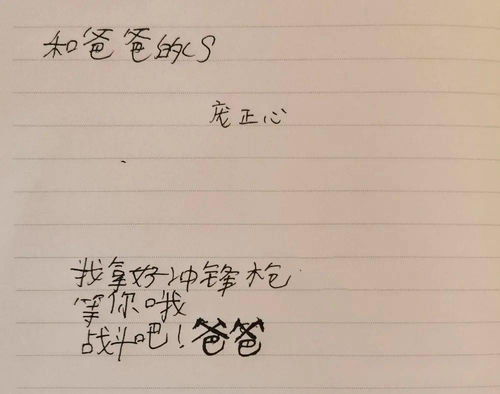 和爸爸的CS
庞正心
我拿好冲锋枪
等你哦
战斗吧！爸爸